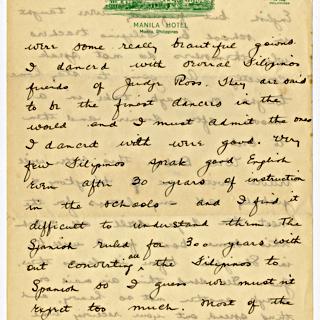 MANILA HOTEL
Manila Philippines
were some really beautiful gowns.
I danced with several Filipinos
friends of Judge Ross. They are said
to be the finest dancers in the
world and I must admit the ones
I danced with were good. Very
few Filipinos speak good English
even after 30 years of instruction
in the schools - and I find it
difficult to understand them. The
Spanish ruled for 300 years with
out converting all the Filipinos to
Spanish so I guess we must n't
expect too much. Most of the